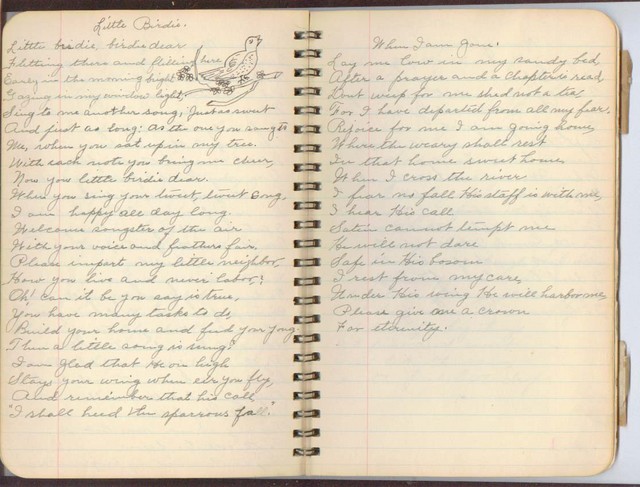 Little Birdie.
Little birdie, birdie dear
Flitting there and flitting here,
Early in the morning bright
Gazing in my window light,
Sing to me another song; Just as sweet
And just as long: as the one you sang to
Me, when you sat up in my tree.
With each note you bring me cheer,
Now you little birdie dear.
When you sing your tweet, tweet song,
I am happy all day long.
Welcome songster of the air
With your voice and feathers fair,
Please impart my little neighbor,
How you live and never labor,?
Oh! can it be you say is true,
You have many tasks to do,
Build your house and feed your yong.
Then a little song is sung?
I am glad that He on high
Stays your wing when eer you fly,
And remember that his call,
"I shall heed the sparrows fall."
When I am Gone.
Lay me low in my sandy bed
After a prayer and a Chapter is read,
Dont weep for me shed not a tear
For I have departed from all my fear,
Rejoice for me I am going home,
Where the weary shall rest
In that home sweet home
When I cross the river
I fear no fall His staff is with me,
I hear His call
Satin cannot tempt me
He will not dare
Safe in His bosom
I rest from my care,
Under His wing He will harbor me,
Please give me a crown
For eternity.